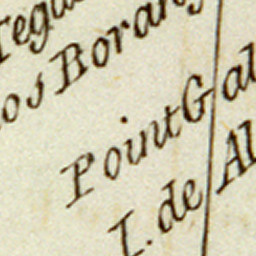 tegu
os Borany
Point Gal
I. de Al